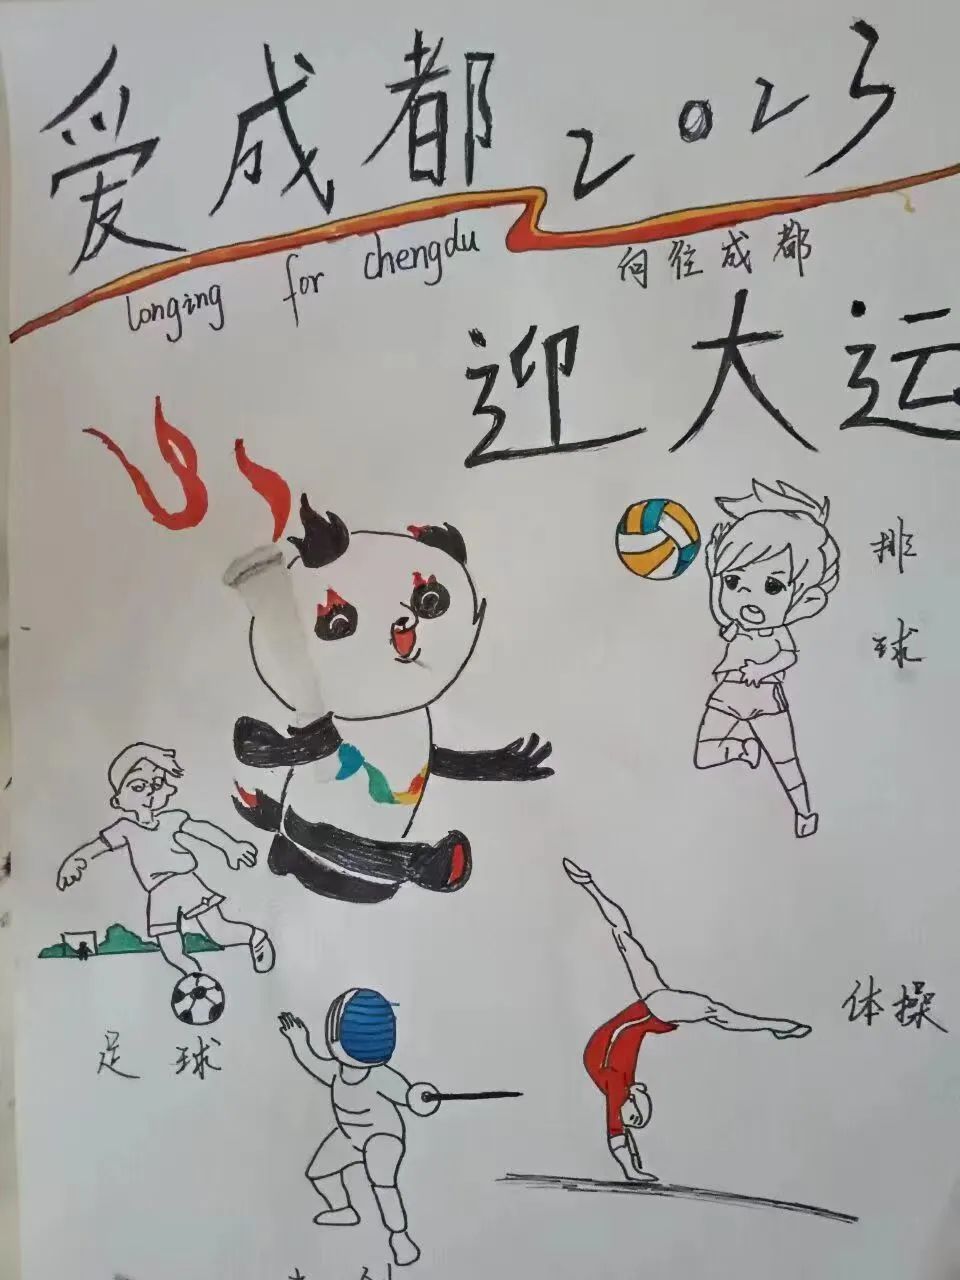 爱成都 2023
longing for chengdu
向往成都
迎大运
排球
足球
体操